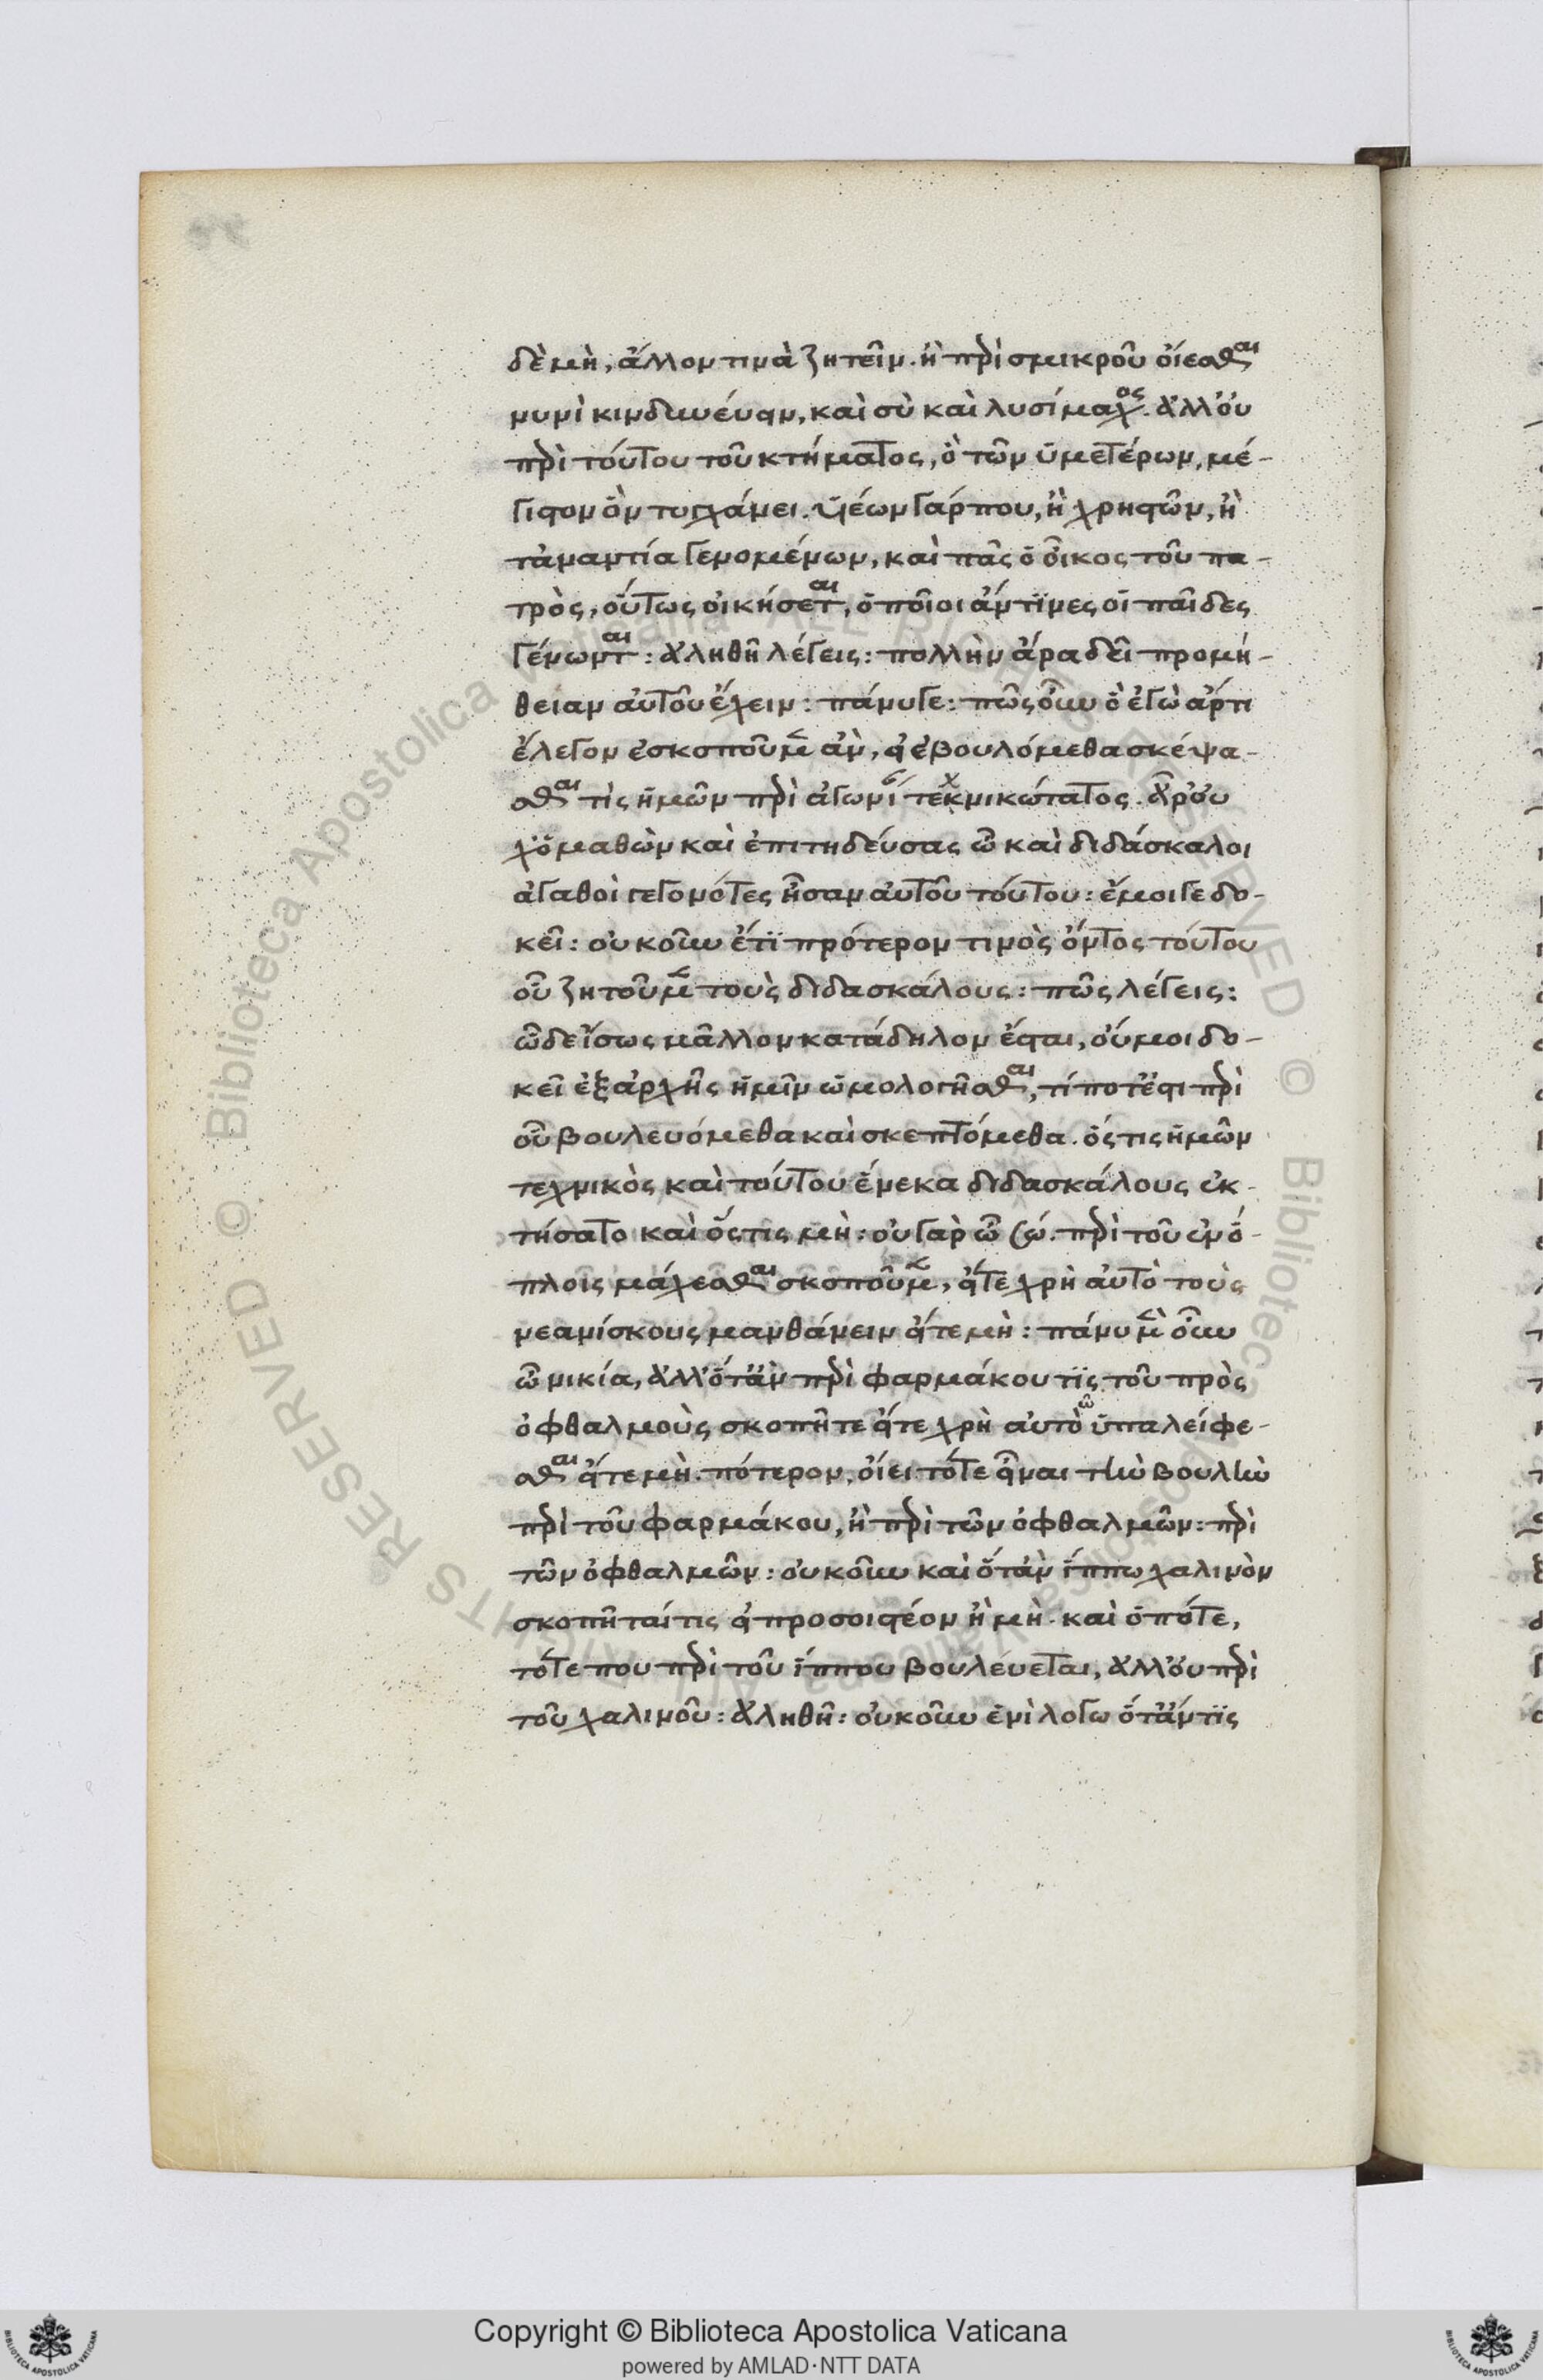 δὲ μὴ, ἄλλον τινὰ ζητεῖν. ἢ πρὶ σμικροῦ οἴεσθαι
νυνὶ κινδυνεύειν, καὶ σὺ καὶ λυσίμαχος. ἀλλ' οὐ
πρὶ τούτου τοῦ κτήματος, ὃ τῶν ὑμετέρων, μέ-
γιστον ὂν τυγχάνει. υἱέων γάρ που, ἢ χρηστῶν, ἢ
τἀναντία γενομένων, καὶ πᾶς ὁ οἶκος τοῦ πα-
τρὸς, οὕτως οἰκήσεται, ὁποῖοι ἄν τινες οἱ παῖδες
γένωνται : ἀληθῆ λέγεις : πολλὴν ἄρα δεῖ προμή-
θειαν αὐτοῦ ἔχειν : πάνυ γε : πῶς οὖν ὃ ἐγὼ ἄρτι
ἔλεγον ἐσκοποῦμεν ἂν, εἰ ἐβουλόμεθα σκέψα-
σθαι τὶς ἡμῶν πρὶ ἀγωνί τεκνικώτατος. ἆρ' οὐ
χ' ὁ μαθὼν καὶ ἐπιτηδεύσας ὦ καὶ διδάσκαλοι
ἀγαθοὶ γεγονότες ἦσαν αὐτοῦ τούτου : ἔμοιγε δο-
κεῖ : οὐκοῦν ἔτι πρότερον τινὸς ὄντος τούτου
οὗ ζητοῦμεν τοὺς διδασκάλους : πῶς λέγεις :
ὧδε ἴσως μᾶλλον κατάδηλον ἔσται, οὔ μοι δο-
κεῖ ἐξ ἀρχῆς ἡμῖν ὡμολογῆσθαι, τί ποτ' ἔστι πρὶ
οὗ βουλευόμεθα καὶ σκεπτόμεθα. ὅστις ἡμῶν
τεχνικὸς καὶ τούτου ἕνεκα διδασκάλους ἐκ-
τήσατο καὶ ὅστις μὴ : οὐ γὰρ ὦ σώ. πρὶ τοῦ ἐν ὅ-
πλοις μάχεσθαι σκοποῦμεν, εἴτε χρὴ αὐτὸ τοὺς
νεανίσκους μανθάνειν εἴτε μὴ : πάνυ μὲν οὖν
ὦ νικία, ἀλλ' ὅταν πρὶ φαρμάκου τις τοῦ πρὸς
ὀφθαλμοὺς σκοπῆτε εἴτε χρὴ αὐτὸ ὑπαλείφε-
σθαι εἴτε μὴ. πότερον, οἴει τότε εἶναι τὴν βουλὴν
πρὶ τοῦ φαρμάκου, ἢ πρὶ τῶν ὀφθαλμῶν : πρὶ
τῶν ὀφθαλμῶν : οὐκοῦν καὶ ὅταν ἵππω χαλινὸν
σκοπῆταί τις εἰ προσοιστέον ἢ μὴ. καὶ ὁπότε,
τότε που πρὶ τοῦ ἵππου βουλεύεται, ἀλλ' οὐ πρὶ
τοῦ χαλινοῦ : ἀληθῆ : οὐκοῦν ἑνὶ λόγω ὅταν τις
Copyright © Biblioteca Apostolica Vaticana
powered by AMLAD·NTT DATA